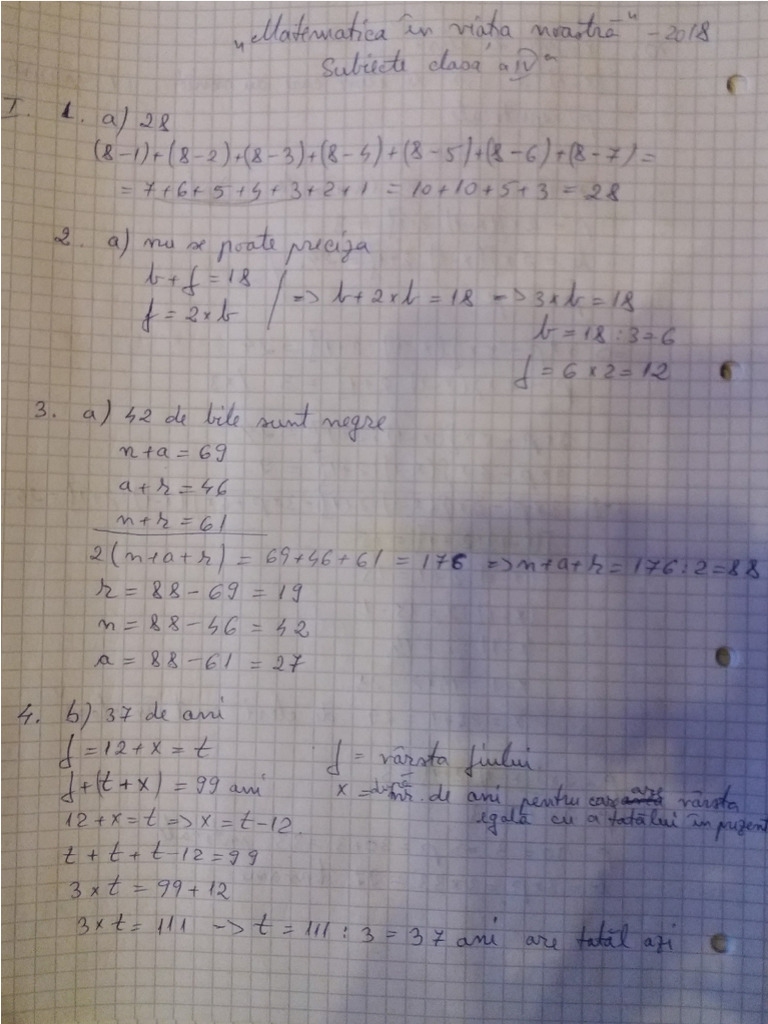 „Matematica în viața noastră" - 2018
Subiecte clasa a IV a
I. 1. a) 28
(8-1)+(8-2)+(8-3)+(8-4)+(8-5)+(8-6)+(8-7)=
= 7+6+5+4+3+2+1 = 10+10+5+3 = 28
2. a) nu se poate preciza
b+f=18
f=2×b
=> b+2×b=18 => 3×b=18
b=18:3=6
f=6×2=12
3. a) 42 de bile sunt negre
n+a=69
a+r=46
n+r=61
2(n+a+r) = 69+46+61 = 176 => n+a+r=176:2=88
r=88-69=19
n=88-46=42
a=88-61=27
4. b) 37 de ani
f=12+x=t f = vârsta fiului
f+(t+x)=99 ani x = după nr. de ani pentru care are vârsta
12+x=t => x=t-12. egală cu a tatălui în prezent
t+t+t-12=99
3×t=99+12
3×t=111 -> t=111:3=37 ani are tatăl azi